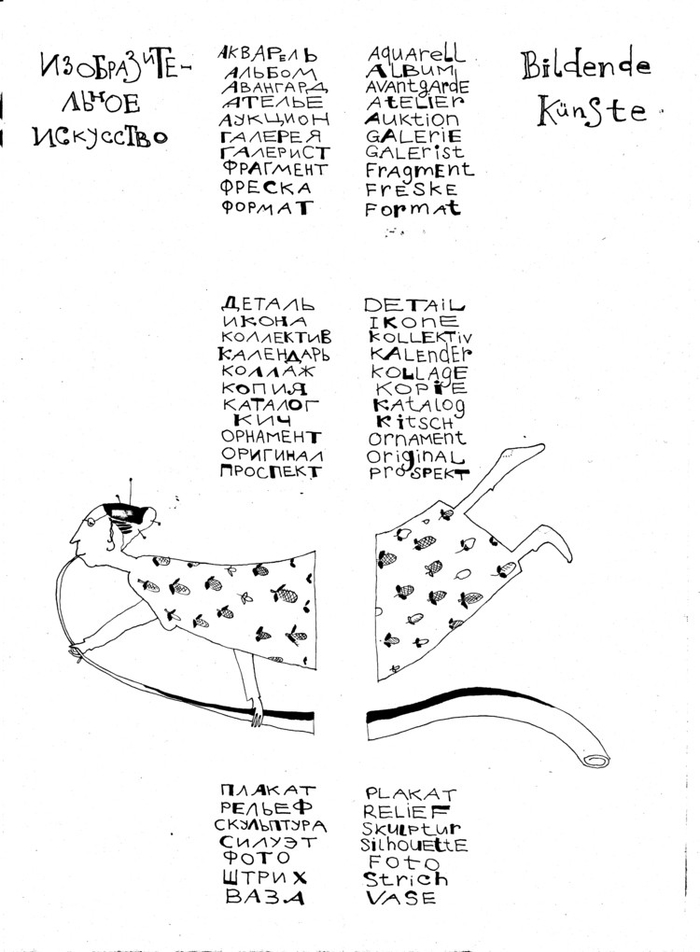 ИЗОБРАЗИТЕ-
ЛЬНОЕ
ИСКУССТВО
Bildende
Künste
АКВАРЕЛЬ AQUARELL
АЛЬБОМ ALBUM
АВАНГАРД AVANTGARDE
АТЕЛЬЕ ATELIER
АУКЦИОН AUKTION
ГАЛЕРЕЯ GALERIE
ГАЛЕРИСТ GALERIST
ФРАГМЕНТ FRAGMENT
ФРЕСКА FRESKE
ФОРМАТ FORMAT
ДЕТАЛЬ DETAIL
ИКОНА IKONE
КОЛЛЕКТИВ KOLLEKTIV
КАЛЕНДАРЬ KALENDER
КОЛЛАЖ KOLLAGE
КОПИЯ KOPIE
КАТАЛОГ KATALOG
КИЧ KITSCH
ОРНАМЕНТ ORNAMENT
ОРИГИНАЛ ORIGINAL
ПРОСПЕКТ PROSPEKT
ПЛАКАТ PLAKAT
РЕЛЬЕФ RELIEF
СКУЛЬПТУРА SKULPTUR
СИЛУЭТ SILHOUETTE
ФОТО FOTO
ШТРИХ STRICH
ВАЗА VASE